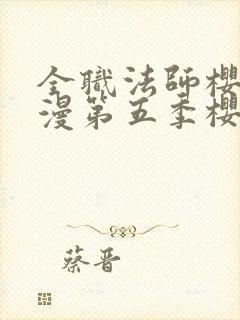 全職法師櫻
漫第五季櫻
蔡晋